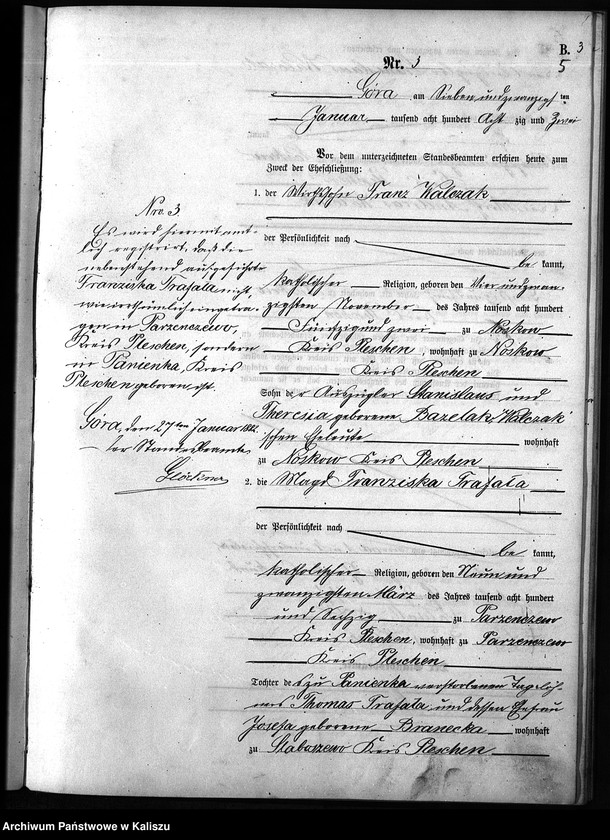 B. 3
Nr. 3 5
Góra am Sieben und zwanzigsten
Januar tausend acht hundert Acht zig und Zwei
Vor dem unterzeichneten Standesbeamten erschien heute zum
Zweck der Eheschließung:
1. der Wirthssohn Franz Walczak
der Persönlichkeit nach
be kannt,
katholischer Religion, geboren den Vier und zwan-
zigsten November des Jahres tausend acht hundert
Fünfzig und zwei zu Noskow
Kreis Pleschen, wohnhaft zu Noskow
Kreis Pleschen
Sohn der Auszügler Stanislaus und
Theresia geborene Bazelak, Walczak
schen Eheleute wohnhaft
zu Noskow Kreis Pleschen
2. die Magd Franziska Frafala
der Persönlichkeit nach
be kannt,
katholischer Religion, geboren den Neun und
zwanzigsten März des Jahres tausend acht hundert
und Sechzig zu Parzenczew
Kreis Pleschen, wohnhaft zu Parzenczew
Kreis Pleschen
Tochter des zu Panienka verstorbenen Tagelöh-
ners Thomas Frafala und dessen Ehefrau
Josefa geborene Branecka wohnhaft
zu Slaboszewo Kreis Pleschen
Nro. 3.
Es wird hiermit amt-
lich registrirt, daß die
nebenstehend aufgeführte
Franziska Frafala nicht
wie irrthümlich eingetra-
gen in Parzenczew,
Kreis Pleschen, sondern
in Panienka, Kreis
Pleschen geboren ist.
Góra, den 27ten Januar 1882.
der Standesbeamte
Glöckner
Archiwum Państwowe w Kaliszu